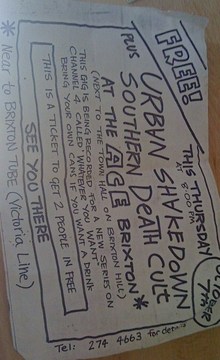 FREE!
THIS THURSDAY
AT 8:00 PM
URBAN SHAKEDOWN
PLUS
SOUTHERN DEATH CULT
AT THE ACE BRIXTON *
(NEXT TO THE TOWN HALL ON BRIXTON HILL)
THIS GIG IS BEING RECORDED FOR A NEW SERIES ON
CHANNEL 4 CALLED 'WHATEVER YOU WANT'
BRING YOUR OWN CANS IF YOU WANT A DRINK
THIS IS A TICKET TO GET 2 PEOPLE IN FREE
SEE YOU THERE
* Near to BRIXTON TUBE (Victoria Line)
Tel: 274 4663 for details